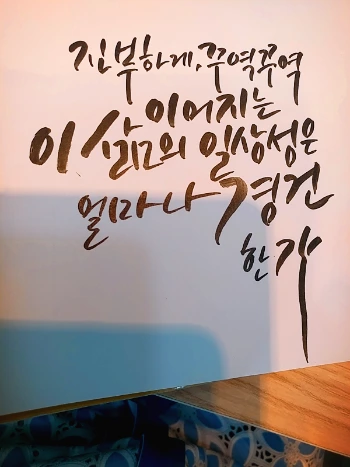 진부하게, 꾸역꾸역
이어지는
이 삶의 일상성은
얼마나 경건
한가